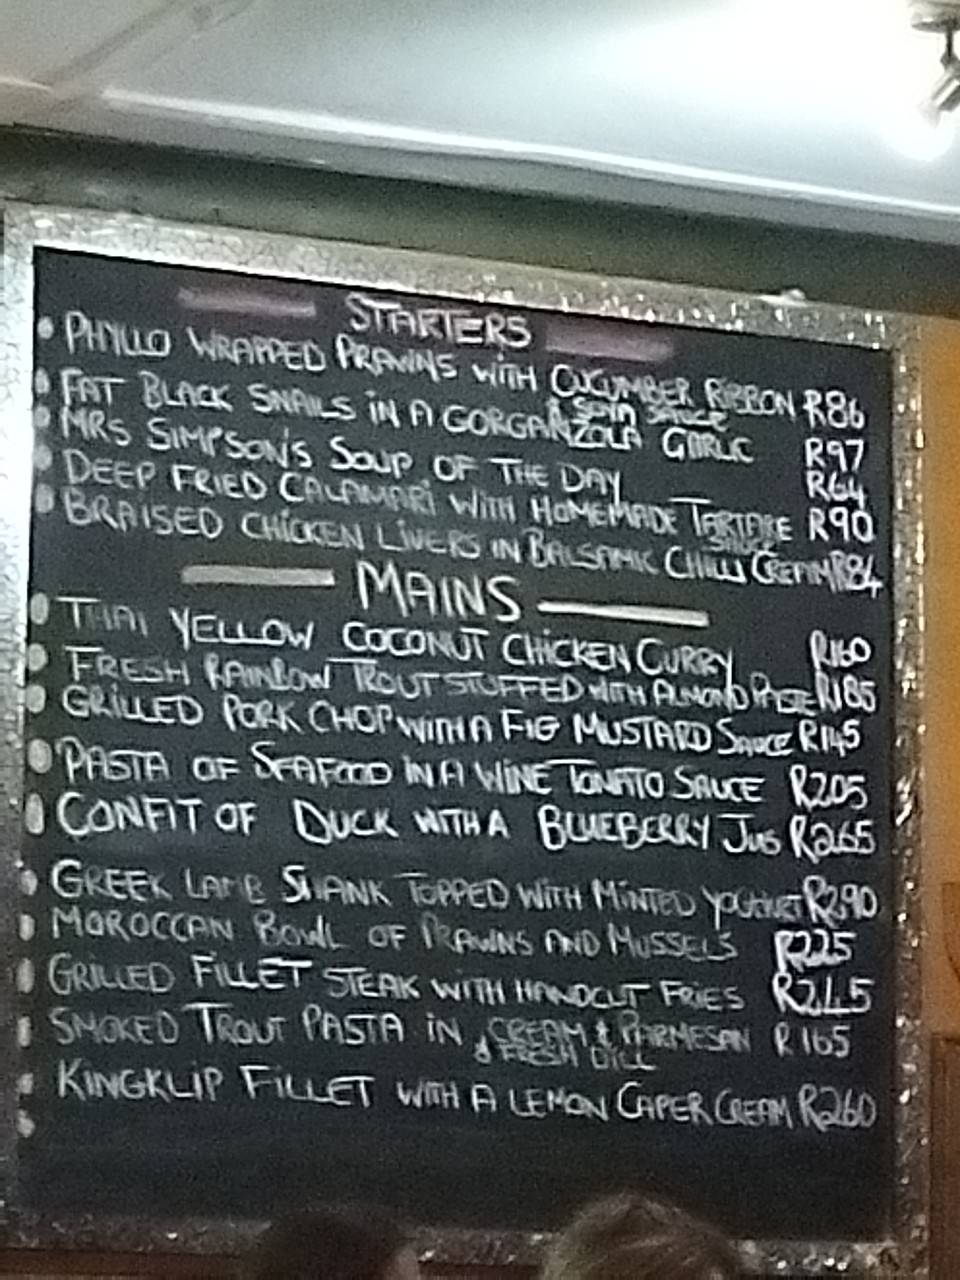 STARTERS
PHYLLO WRAPPED PRAWNS WITH CUCUMBER RIBBON R86
& SOYA SAUCE
FAT BLACK SNAILS IN A GORGANZOLA GARLIC R97
MRS SIMPSON'S SOUP OF THE DAY R64
DEEP FRIED CALAMARI WITH HOMEMADE TARTARE R90
SAUCE
BRAISED CHICKEN LIVERS IN BALSAMIC CHILLI CREAM R84
MAINS
THAI YELLOW COCONUT CHICKEN CURRY R160
FRESH RAINBOW TROUT STUFFED WITH ALMOND PASTE R185
GRILLED PORK CHOP WITH A FIG MUSTARD SAUCE R145
PASTA OF SEAFOOD IN A WINE TOMATO SAUCE R205
CONFIT OF DUCK WITH A BLUEBERRY JUS R265
GREEK LAMB SHANK TOPPED WITH MINTED R290
MOROCCAN BOWL OF PRAWNS AND MUSSELS R225
GRILLED FILLET STEAK WITH HANDCUT FRIES R245
SMOKED TROUT PASTA IN CREAM & PARMESAN R165
& FRESH DILL
KINGKLIP FILLET WITH A LEMON CAPER CREAM R260